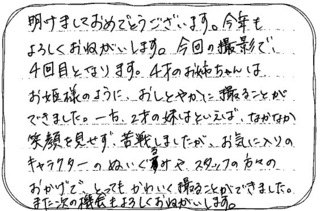 明けましておめでとうございます。今年も
よろしくおねがいします。今回の撮影で、
4回目となります。4才のお姉ちゃんは
お姫様のように、おしとやかに撮ることが
できました。一方、2才の妹はといえば、なかなか
笑顔を見せず、苦戦しましたが、お気に入りの
キャラクターのぬいぐるみや、スタッフの方々の
おかげで、とってもかわいく撮ることができました。
また次の機会もよろしくおねがいします。